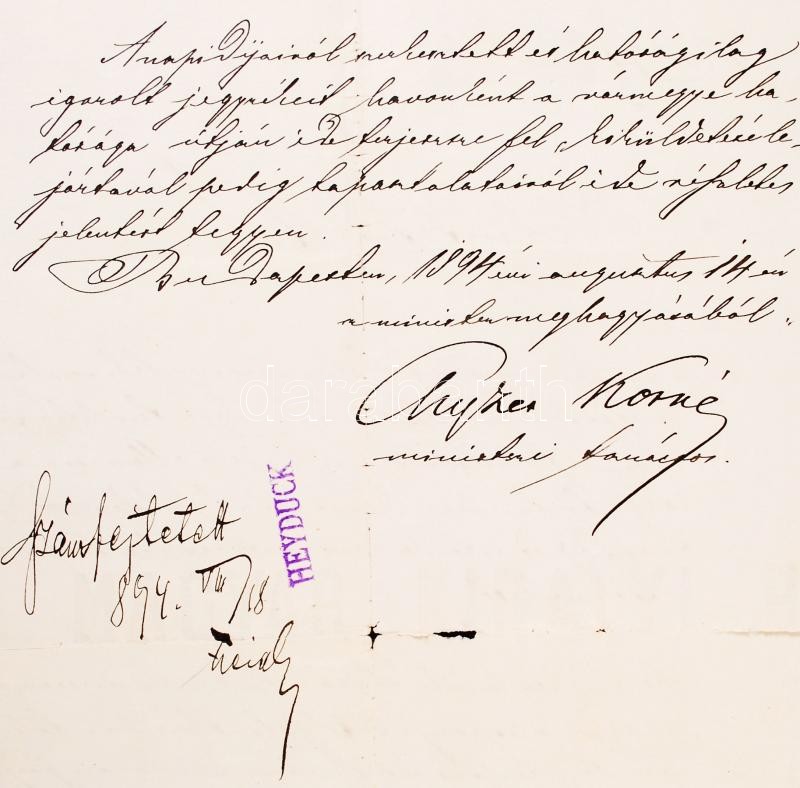 A napi díjairól szerkesztett és hatóságilag
igazolt jegyzékeit havonként a vármegye ha-
tósága útján ide terjessze fel, kiküldetése le-
jártával pedig tapasztalatairól ide részletes
jelentést tegyen.
Budapesten, 1894 évi augusztus 14 én
a minister meghagyásából.
Chyzer Kornél
ministeri tanácsos.
HEYDUCK
Számfejtetett
894. VIII/18
darabanth